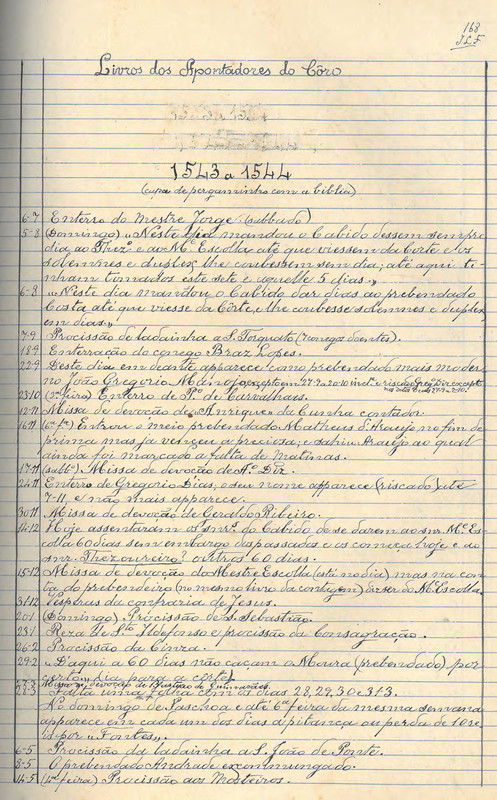 168
J.L.F
Livros dos Apontadores do Côro
1543 a 1544
(capa de pergaminho com a biblia)
6-7 Enterro do Mestre Jorge. (sabbado)
5-8 (Domingo) «Neste dia mandou o Cabido dessem sempre
dia ao Thezº e ao Mº Escolla até que viessem da Corte e los
solemnes e duplex, lhe coubessem sem dia, até aqui ti-
nham tomados este sete e aquelle 5 dias.»
6-8 «Neste dia mandou o Cabido dar dias ao prebendado
Costa até que viesse da Côrte, e lhe coubesse solemnes e duplex
em dias»
7-9 Procissão de ladainha a S. Torquato (7 conegos doentes).
18-9 Enterração do conego Braz Lopes.
22-9 Deste dia em deante apparece como prebendado mais moder-
no João Gregorio
23-10 (3ª feira) Enterro de Pº de Carvalhaes.
12-11 Missa de devoção de «Anrique» da Cunha contador.
16-11 (6ª fª) Entrou o meio prebendado Matheus d'Araujo no fim de
prima mas ja vençeu a preciosa, e sahiu Araujo ao qual
ainda foi marcado a falta de Matinas.
17-11 (sabbº) Missa de devoção de Aº Diz.
24-11 Enterro de Gregorio Dias, o seu nome apparece (riscado) até
7-11, e não mais apparece.
30-11 Missa de devoção de Geraldo Ribeiro.
14-12 Hoje assentaram os snrs. do Cabido de se darem ao snr. Mº Es-
colla 60 dias sem embargo dos passados e os começa hoje e ao
snr. Thezoureiro? outros 60 dias.
15-12 Missa de devoção do Mestre Escolla (está no dia) mas na con-
ta do prebendeiro (no mesmo livro da contagem) diz ser do M. Escolla.
31-12 Vesperas da confraria de Jesus.
20-1 (Domingo) Procissão de S. Sebastião.
23-1 Reza de Stº Ildefonso e procissão da Consagração.
26-2 Procissão da Cinza.
29-2 «D'aqui a 60 dias não caçam o Moura (prebendado) por
ir para a côrte»
27-3 Missa de devoção de Guimarães.
28-3 Falta uma folha com os dias 28, 29, 30 e 31-3.
No domingo de Paschoa e até 6ª feira da mesma semana
apparece em cada um dos dias a pitança ou perda de 10 re-
is por «Fontes».
6-5 Procissão da ladainha a S. João de Ponte.
8-5 O prebendado Andrade excommungado.
14-5 (4ª feira) Procissão aos Mosteiros.